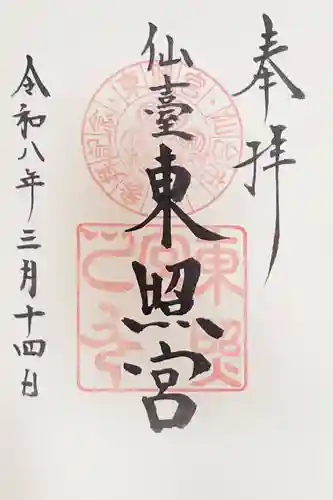 奉拝
仙臺東照宮
令和八年三月十四日
東照宮